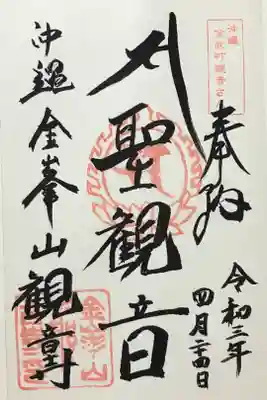 沖縄
金武町観音寺
奉拝
令和三年
四月二十四日
聖観音
沖縄 金峯山 観音寺